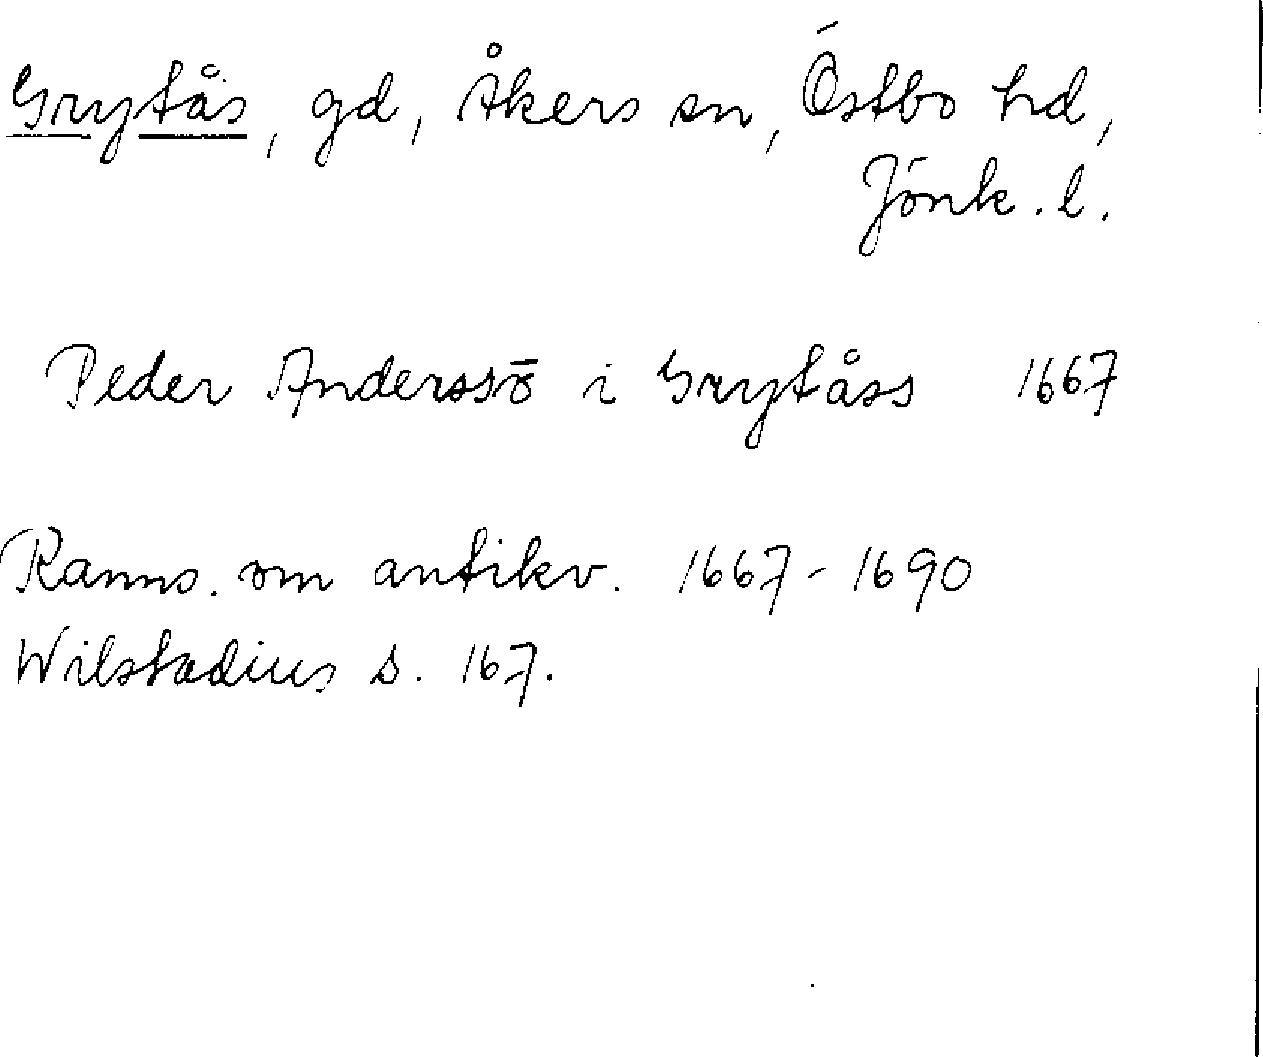 Grytås, gd, Åkers sn, Östbo hd,
Jönk. l.
Peder Anderssō i Grytåss 1667
Ranns. om antikv. 1667-1690
Wilstadius s. 167.